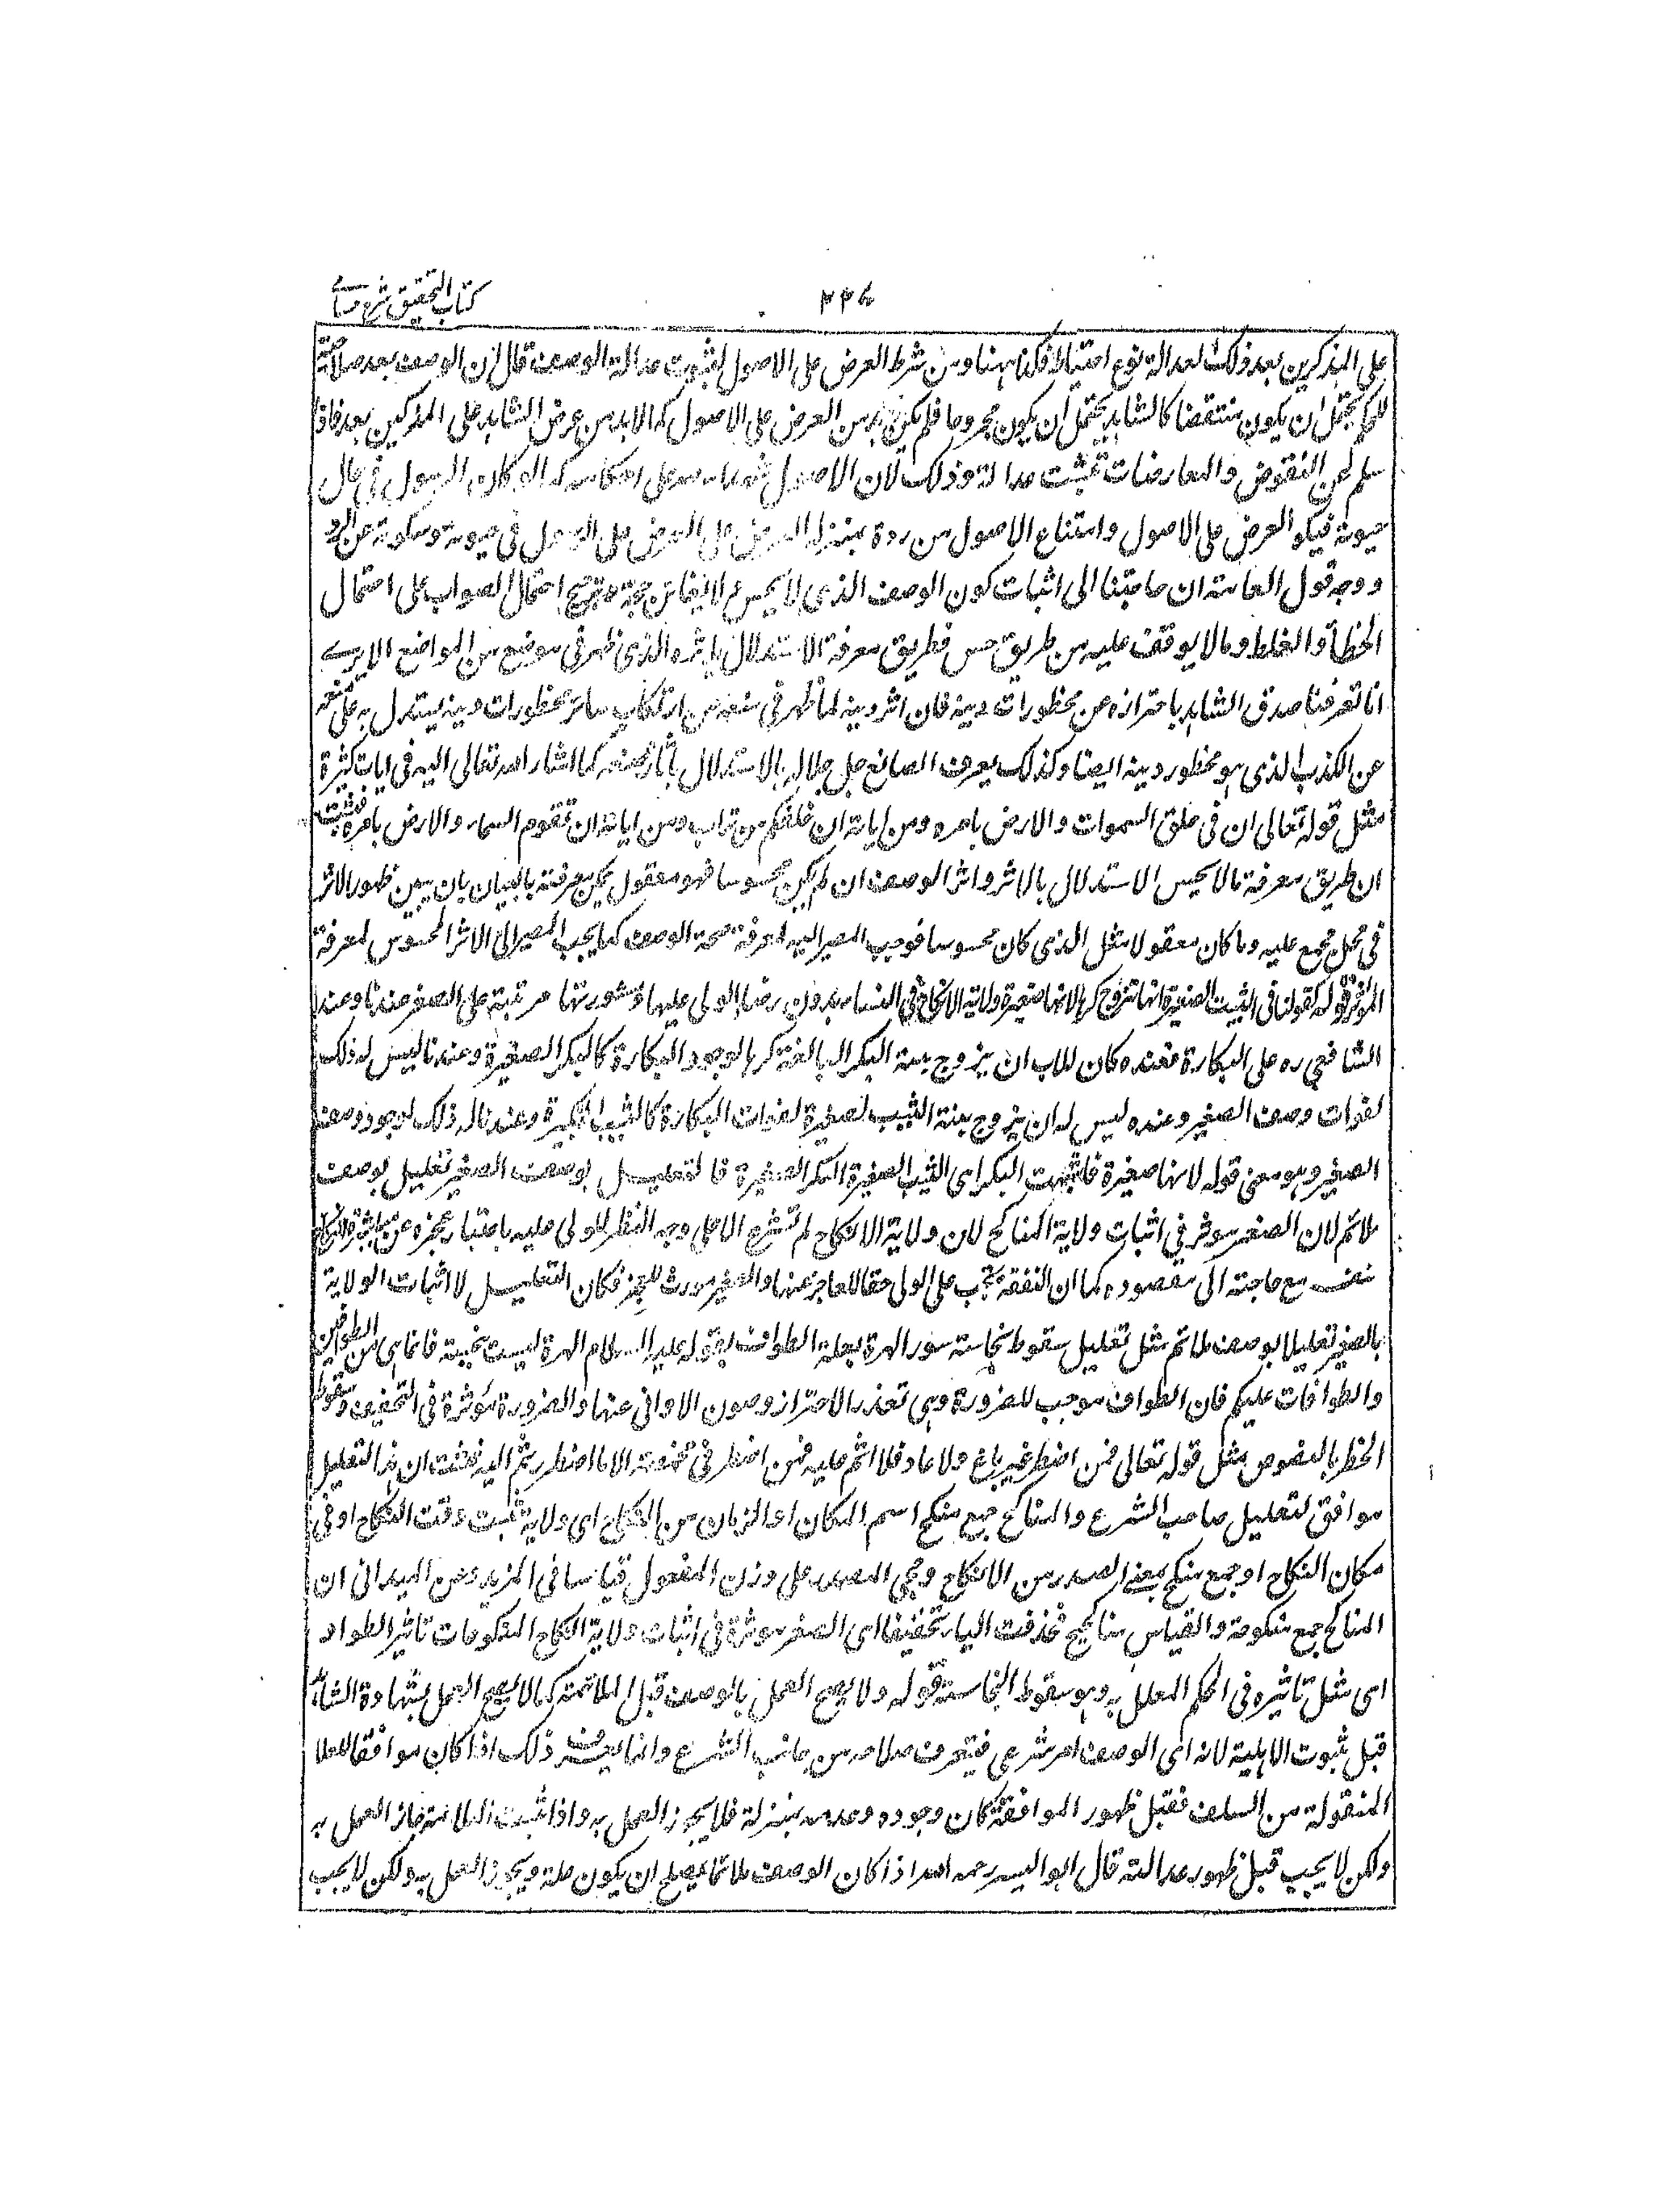 كتاب التحقيق شرح حسامي
٢٢٧
على المذكرين بعد ذلك لعدالة نوع احتياط فكذا ههنا ومن شرط العرض على الاصول لثبوت عدالة الوصف قال ان الوصف بعد صلاحية
للحكم يحتمل ان يكون منتقضا كالشاهد يحتمل ان يكون مجروحا فلم يكن بد من العرض على الاصول كما لابد من عرض الشاهد على المزكين بعد فاذا
سلم عن النقوض والمعارضات تثبت عدالته وذلك لان الاصول على احكامه كما كان الرسول فى حال
حيوته فيكون العرض على الاصول وامتناع الاصول من رده بمنزلة العرض على الرسول فى حيوته وسكوته عن الرد
ووجه قول العامة ان حاجتنا الى اثبات كون الوصف الذى لا يحس ولا يعاين حجة وترجيح احتمال الصواب على احتمال
الخطأ والغلط وما لا يوقف عليه من طريق حس فطريق معرفة الاستدلال باثره الذى ظهر فى موضع من المواضع الا يرى
انا تعرفنا صدق الشاهد باحترازه عن محظورات دينه فان اثر دينه لما ظهر فى منعه من ارتكاب سائر محظورات دينه يستدل به على منعه
عن الكذب الذى هو محظور دينه ايضا وكذلك يعرف الصانع جل جلاله بالاستدلال بآثار صنعه كما اشار الله تعالى اليه فى ايات كثيرة
مثل قوله تعالى ان فى خلق السموات والارض بامره ومن اياته ان خلقكم من تراب ومن اياته ان تقوم السماء والارض بامره فثبت
ان طريق معرفة ما لا يحس الاستدلال بالاثر واثر الوصف ان لم يكن محسوسا فهو معقول يمكن معرفته بالبيان بان يبين ظهور الاثر
فى محل مجمع عليه وما كان معقولا مثل الذى كان محسوسا فوجب المصير اليه لمعرفة صحة الوصف كما يجب المصير الى الاثر المحسوس لمعرفة
المؤثر قوله كقولنا فى الثيب الصغيرة انها تزوج كرها لانها صغيرة ولاية الانكاح فى النساء بدون رضا المولى عليها ومشورتها مرتبة على الصغر عندنا وعند
الشافعى ره على البكارة فعنده كان للاب ان يزوج بنته البكر البالغة كرها لوجود البكارة كالبكر الصغيرة وعندنا ليس له ذلك
لفوات وصف الصغر وعنده ليس له ان يزوج بنته الثيب الصغيرة لفوات البكارة كالثيب الكبيرة وعندنا له ذلك لوجود وصف
الصغر وهو معنى قوله لانها صغيرة فاشبهت البكر اى الثيب الصغيرة البكر الصغيرة فالتعليل بوصف الصغر تعليل بوصف
ملائم لان الصغر مؤثر فى اثبات ولاية المناكح لان ولاية الانكاح لم تشرع الا على وجه النظر للمولى عليه باعتبار عجزه عن مباشرة النكاح
بنفسه مع حاجته الى مقصوده كما ان النفقة تجب على الولى حقا للعاجز عنها والصغر مورث للعجز فكان التعليل لاثبات الولاية
بالصغر تعليلا بوصف ملائم مثل تعليل سقوط نجاسة سور الهرة بعلة الطواف بقوله عليه السلام الهرة ليست نجسة فانما هى من الطوافين
والطوافات عليكم فان الطواف موجب للضرورة وهى تعذر الاحتراز وصون الاوانى عنها والضرورة مؤثرة فى التخفيف وسقوط
الحظر بالنصوص مثل قوله تعالى فمن اضطر غير باغ ولا عاد فلا اثم عليه فمن اضطر فى مخمصة الا ما اضطررتم اليه فثبت ان هذا التعليل
موافق لتعليل صاحب الشرع والمناكح جمع منكح اسم المكان او الزمان من النكاح اى ولاية تثبت وقت النكاح او فى
مكان النكاح او جمع منكح بمعنى المصدر من الانكاح ومجى المصدر على وزن المفعول قياسا فى المزيد وعن الميدانى ان
المناكح جمع منكوحة والقياس مناكيح فحذفت الياء تخفيفا اى الصغر مؤثرة فى اثبات ولاية النكاح المنكوحات تاثير الطواف
اى مثل تاثيره فى الحكم المعلل به وهو سقوط النجاسة قوله ولا يصح العمل بالوصف قبل الملائمة كما لا يصح العمل بشهادة الشاهد
قبل ثبوت الاهلية لانه اى الوصف امر شرعى فيتعرف صلاحه من جانب الشرع وانما يعرف ذلك اذا كان موافقا للعلل
المنقولة من السلف فقبل ظهور الموافقة كان وجوده وعدمه بمنزلة فلا يجوز العمل به واذا ثبت الملائمة جاز العمل به
ولكن لا يجب قبل ظهور عدالته قال ابو اليسر رحمه الله اذا كان الوصف ملائما يصلح ان يكون علة ويجوز العمل به ولكن لا يجب